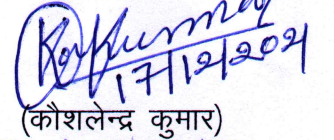 17/12/2021
(कौशलेन्द्र कुमार)